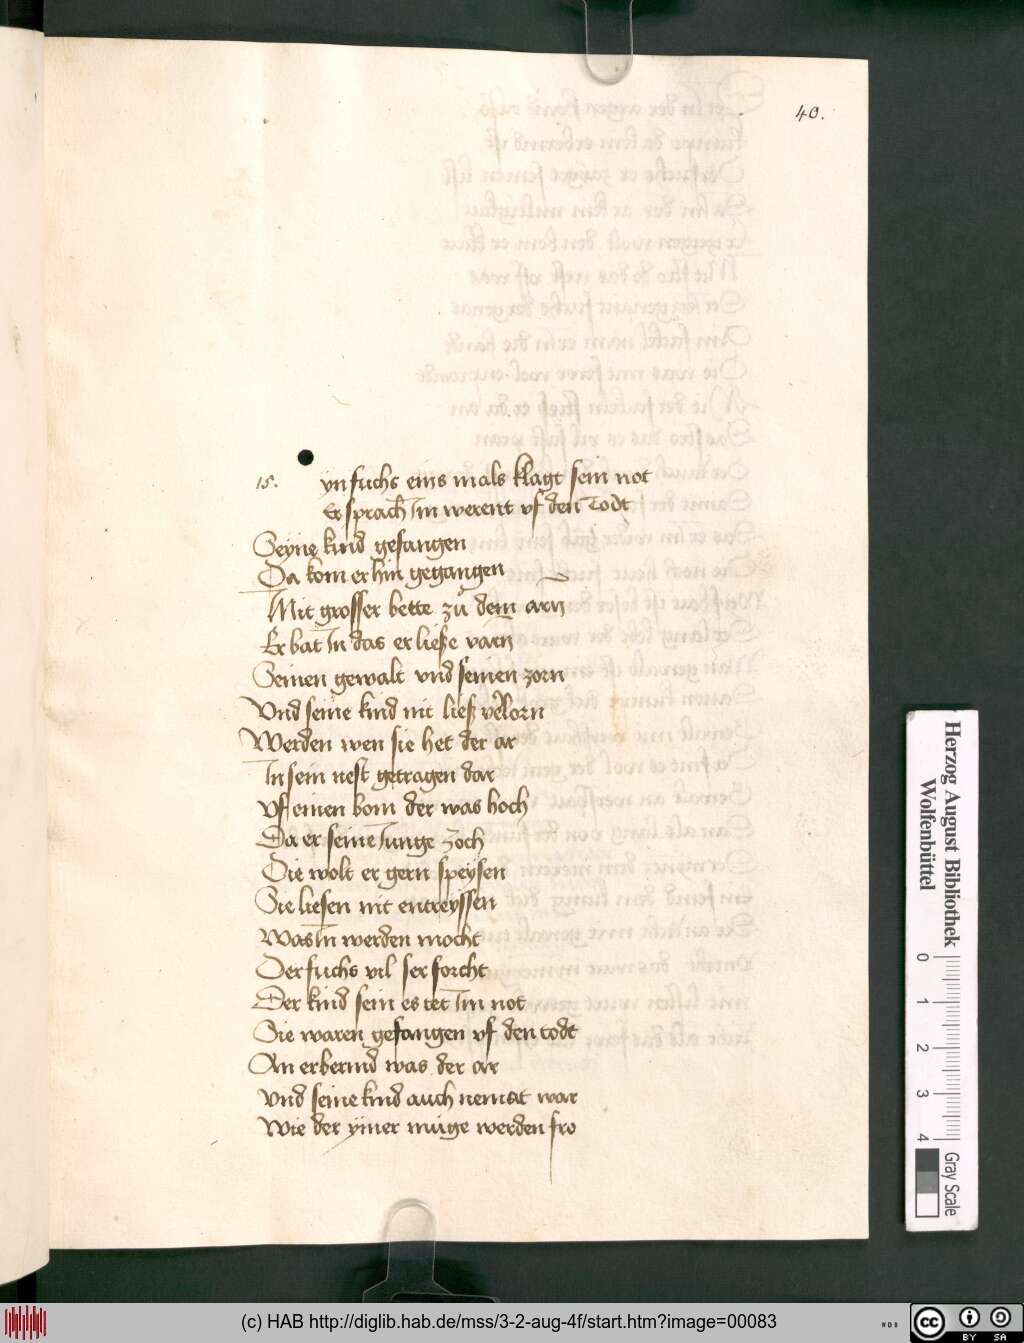 40.
15. yn fuchs eins mals klagt sein not
Er sprach Im werent vf den Todt
Seyne kind gefangen
Da kom er hin gegangen
Mit grosser bette zů dem arn
Er bat In das er ließe varn
Seinen gewalt vnd seinen zorn
Vnd seine kind nit ließ v̓lorn
Werden wen sie het der ar
In sein nest getragen dar
Vf einen bom der was hoch
Da er seine Iunge zoch
Die wolt er gern speysen
Sie liesen nit entreyssen
Was In werden mocht
Der fuchs vil ser forcht
Der kind sein es tet Im not
Sie waren gefangen vf den todt
An erbermd was der ar
Vnd seine kind auch nemat war
Wie der ymer muge werden fro
Herzog August Bibliothek
Wolfenbüttel
0 1 2 3 4
Gray Scale
(c) HAB http://diglib.hab.de/mss/3-2-aug-4f/start.htm?image=00083
WDB
cc
BY SA